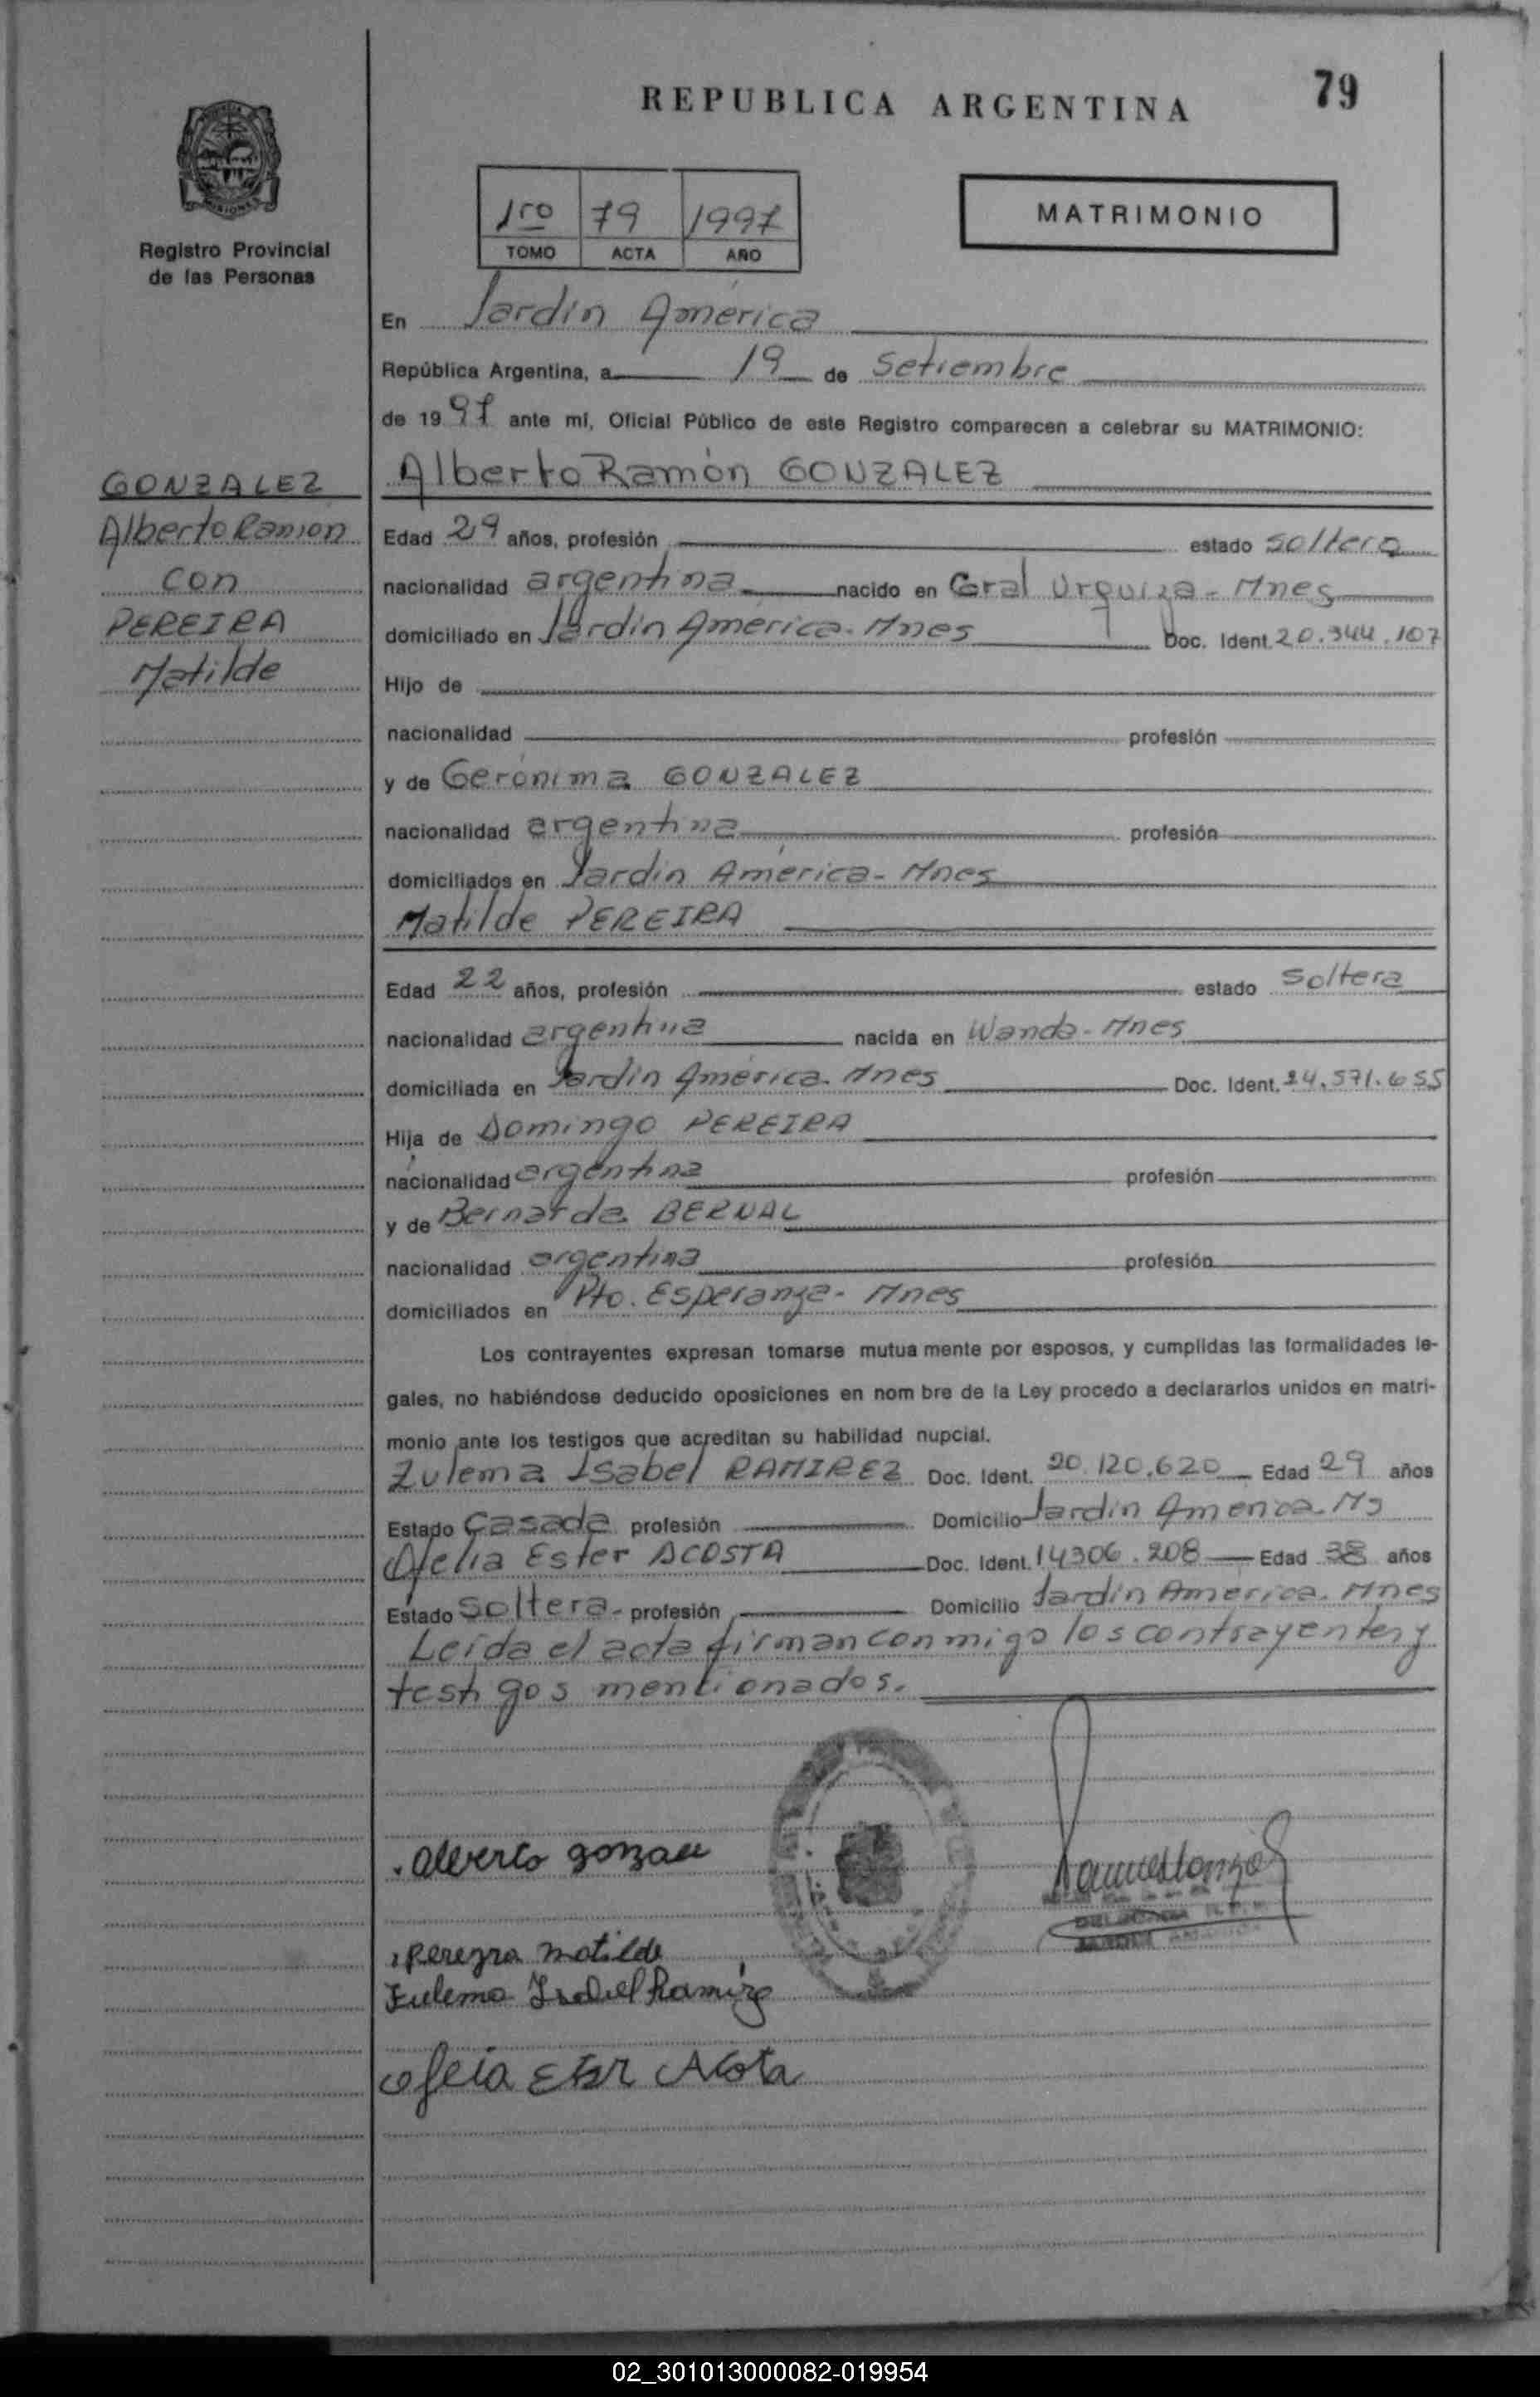 REPUBLICA ARGENTINA
79
MISIONES
Registro Provincial
de las Personas
1ro 79 1997
TOMO ACTA AÑO
MATRIMONIO
En Jardín América
República Argentina, a 19 de Setiembre
de 1997 ante mí, Oficial Público de este Registro comparecen a celebrar su MATRIMONIO:
GONZALEZ
Alberto Ramón
con
PEREIRA
Matilde
Alberto Ramón GONZALEZ
Edad 29 años, profesión estado soltero
nacionalidad argentina nacido en Gral Urquiza - Mnes
domiciliado en Jardín América - Mnes Doc. Ident. 20.344.107
Hijo de
nacionalidad profesión
y de Gerónima GONZALEZ
nacionalidad argentina profesión
domiciliados en Jardín América - Mnes
Matilde PEREIRA
Edad 22 años, profesión estado soltera
nacionalidad argentina nacida en Wanda - Mnes
domiciliada en Jardín América - Mnes Doc. Ident. 24.571.655
Hija de Domingo PEREIRA
nacionalidad argentina profesión
y de Bernarda BERNAL
nacionalidad argentina profesión
domiciliados en Pto. Esperanza - Mnes
Los contrayentes expresan tomarse mutua mente por esposos, y cumplidas las formalidades le-
gales, no habiéndose deducido oposiciones en nom bre de la Ley procedo a declararlos unidos en matri-
monio ante los testigos que acreditan su habilidad nupcial.
Zulema Isabel RAMIREZ Doc. Ident. 20.120.620 Edad 29 años
Estado Casada profesión Domicilio Jardín América - Ms
Ofelia Ester ACOSTA Doc. Ident. 14306.208 Edad 38 años
Estado Soltera - profesión Domicilio Jardín América - Mnes
Leída el acta firman conmigo los contrayentes y
testigos mentionados.
Alberto gonzale
pereyra matilde
Zulema Isabel Ramirz
ofelia Ester Acosta
02_301013000082-019954